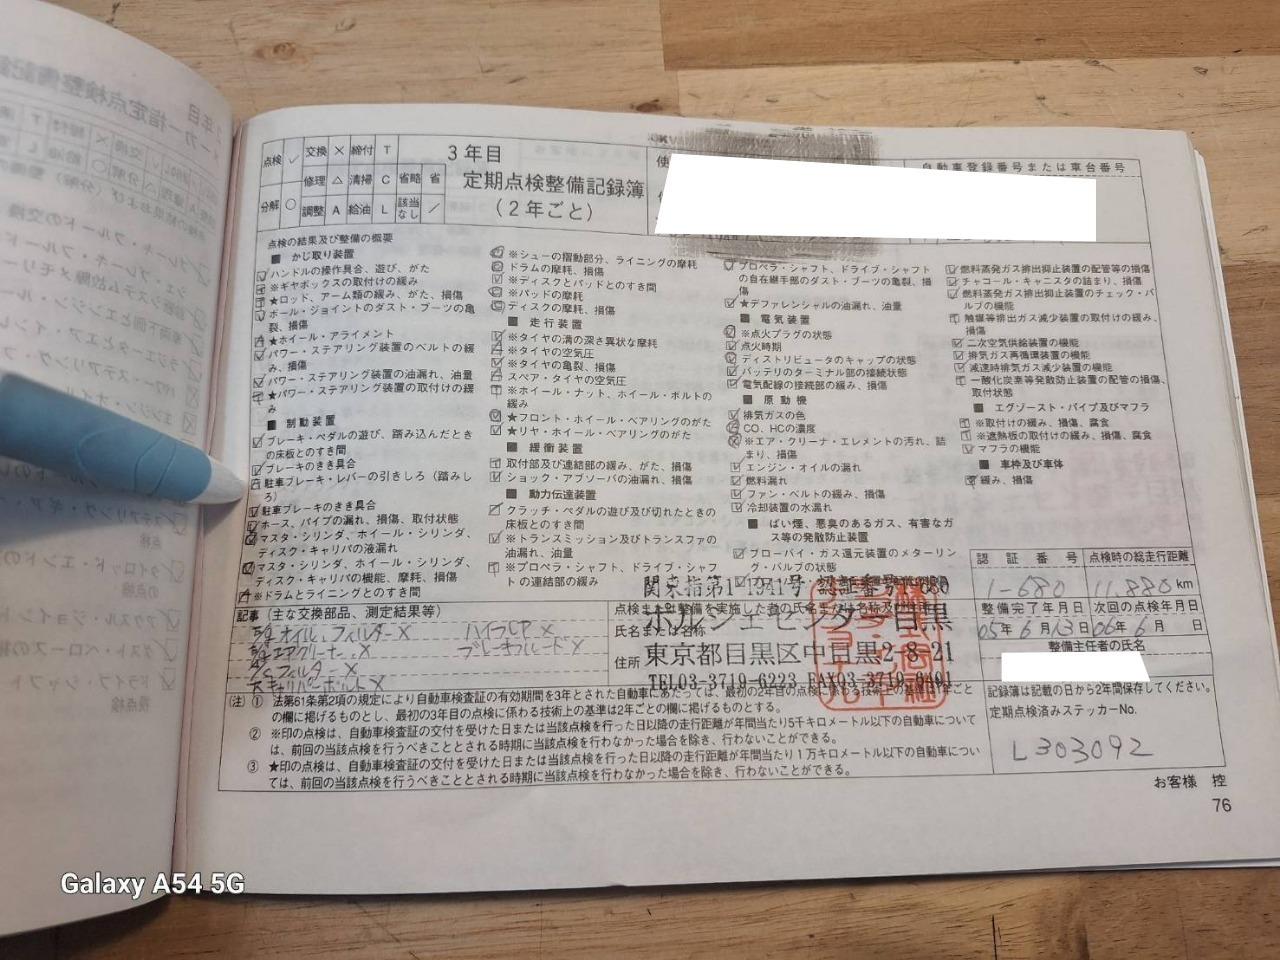 点検 ✓ 交換 × 締付 T
修理 △ 清掃 C 省略 省
分解 ○ 調整 A 給油 L 該当なし /
3年目
定期点検整備記録簿
(2年ごと)
使
自動車登録番号または車台番号
点検の結果及び整備の概要
■ かじ取り装置
ハンドルの操作具合、遊び、がた
※ギヤボックスの取付けの緩み
★ロッド、アーム類の緩み、がた、損傷
ボール・ジョイントのダスト・ブーツの亀
裂、損傷
★ホイール・アライメント
パワー・ステアリング装置のベルトの緩
み、損傷
パワー・ステアリング装置の油漏れ、油量
★パワー・ステアリング装置の取付けの緩
み
■ 制動装置
ブレーキ・ペダルの遊び、踏み込んだとき
の床板とのすき間
ブレーキのきき具合
駐車ブレーキ・レバーの引きしろ(踏みし
ろ)
駐車ブレーキのきき具合
ホース、パイプの漏れ、損傷、取付状態
マスタ・シリンダ、ホイール・シリンダ、
ディスク・キャリパの液漏れ
マスタ・シリンダ、ホイール・シリンダ、
ディスク・キャリパの機能、摩耗、損傷
※ドラムとライニングとのすき間
※シューの摺動部分、ライニングの摩耗
ドラムの摩耗、損傷
※ディスクとパッドとのすき間
※パッドの摩耗
ディスクの摩耗、損傷
■ 走行装置
※タイヤの溝の深さ異状な摩耗
※タイヤの空気圧
※タイヤの亀裂、損傷
スペア・タイヤの空気圧
※ホイール・ナット、ホイール・ボルトの
緩み
★フロント・ホイール・ベアリングのがた
★リヤ・ホイール・ベアリングのがた
■ 緩衝装置
取付部及び連結部の緩み、がた、損傷
ショック・アブソーバの油漏れ、損傷
■ 動力伝達装置
クラッチ・ペダルの遊び及び切れたときの
床板とのすき間
※トランスミッション及びトランスファの
油漏れ、油量
※プロペラ・シャフト、ドライブ・シャフ
トの連結部の緩み
プロペラ・シャフト、ドライブ・シャフト
の自在継手部のダスト・ブーツの亀裂、損
傷
★デファレンシャルの油漏れ、油量
■ 電気装置
※点火プラグの状態
点火時期
ディストリビュータのキャップの状態
バッテリのターミナル部の接続状態
電気配線の接続部の緩み、損傷
■ 原動機
排気ガスの色
CO、HCの濃度
※エア・クリーナ・エレメントの汚れ、詰
まり、損傷
エンジン・オイルの漏れ
燃料漏れ
ファン・ベルトの緩み、損傷
冷却装置の水漏れ
■ ばい煙、悪臭のあるガス、有害なガ
ス等の発散防止装置
ブローバイ・ガス還元装置のメターリン
グ・バルブの状態
燃料蒸発ガス排出抑止装置の配管等の損傷
チャコール・キャニスタの詰まり、損傷
燃料蒸発ガス排出抑止装置のチェック・バ
ルブの機能
触媒等排出ガス減少装置の取付けの緩み、
損傷
二次空気供給装置の機能
排気ガス再循環装置の機能
減速時排気ガス減少装置の機能
一酸化炭素等発散防止装置の配管の損傷、
取付状態
■ エグゾースト・パイプ及びマフラ
※取付けの緩み、損傷、腐食
※遮熱板の取付けの緩み、損傷、腐食
マフラの機能
■ 車枠及び車体
緩み、損傷
認証番号 点検時の総走行距離
1-680 11,880 km
整備完了年月日 次回の点検年月日
05年6月13日 06年6月 日
整備主任者の氏名
記録簿は記載の日から2年間保存してください。
定期点検済みステッカーNo.
L303092
記事(主な交換部品、測定結果等)
オイル、フィルター ×
エアクリーナー ×
A/Cフィルター ×
キャリパーボルト ×
ブレーキフルード ×
関東指第1-1941号 認証番号1-680
点検または整備を実施した者の氏名または名称及び住所
氏名または名称 ポルシェセンター目黒
住所 東京都目黒区中目黒2-8-21
TEL03-3719-6223 FAX03-3719-0491
(注) ① 法第61条第2項の規定により自動車検査証の有効期間を3年とされた自動車にあたっては、最初の2年目の点検に係わる技術上の基準は1年ごと
の欄に掲げるものとし、最初の3年目の点検に係わる技術上の基準は2年ごとの欄に掲げるものとする。
② ※印の点検は、自動車検査証の交付を受けた日または当該点検を行った日以降の走行距離が年間当り5千キロメートル以下の自動車について
は、前回の当該点検を行うべきこととされる時期に当該点検を行わなかった場合を除き、行わないことができる。
③ ★印の点検は、自動車検査証の交付を受けた日または当該点検を行った日以降の走行距離が年間当り1万キロメートル以下の自動車につい
ては、前回の当該点検を行うべきこととされる時期に当該点検を行わなかった場合を除き、行わないことができる。
お客様 控
76
Galaxy A54 5G